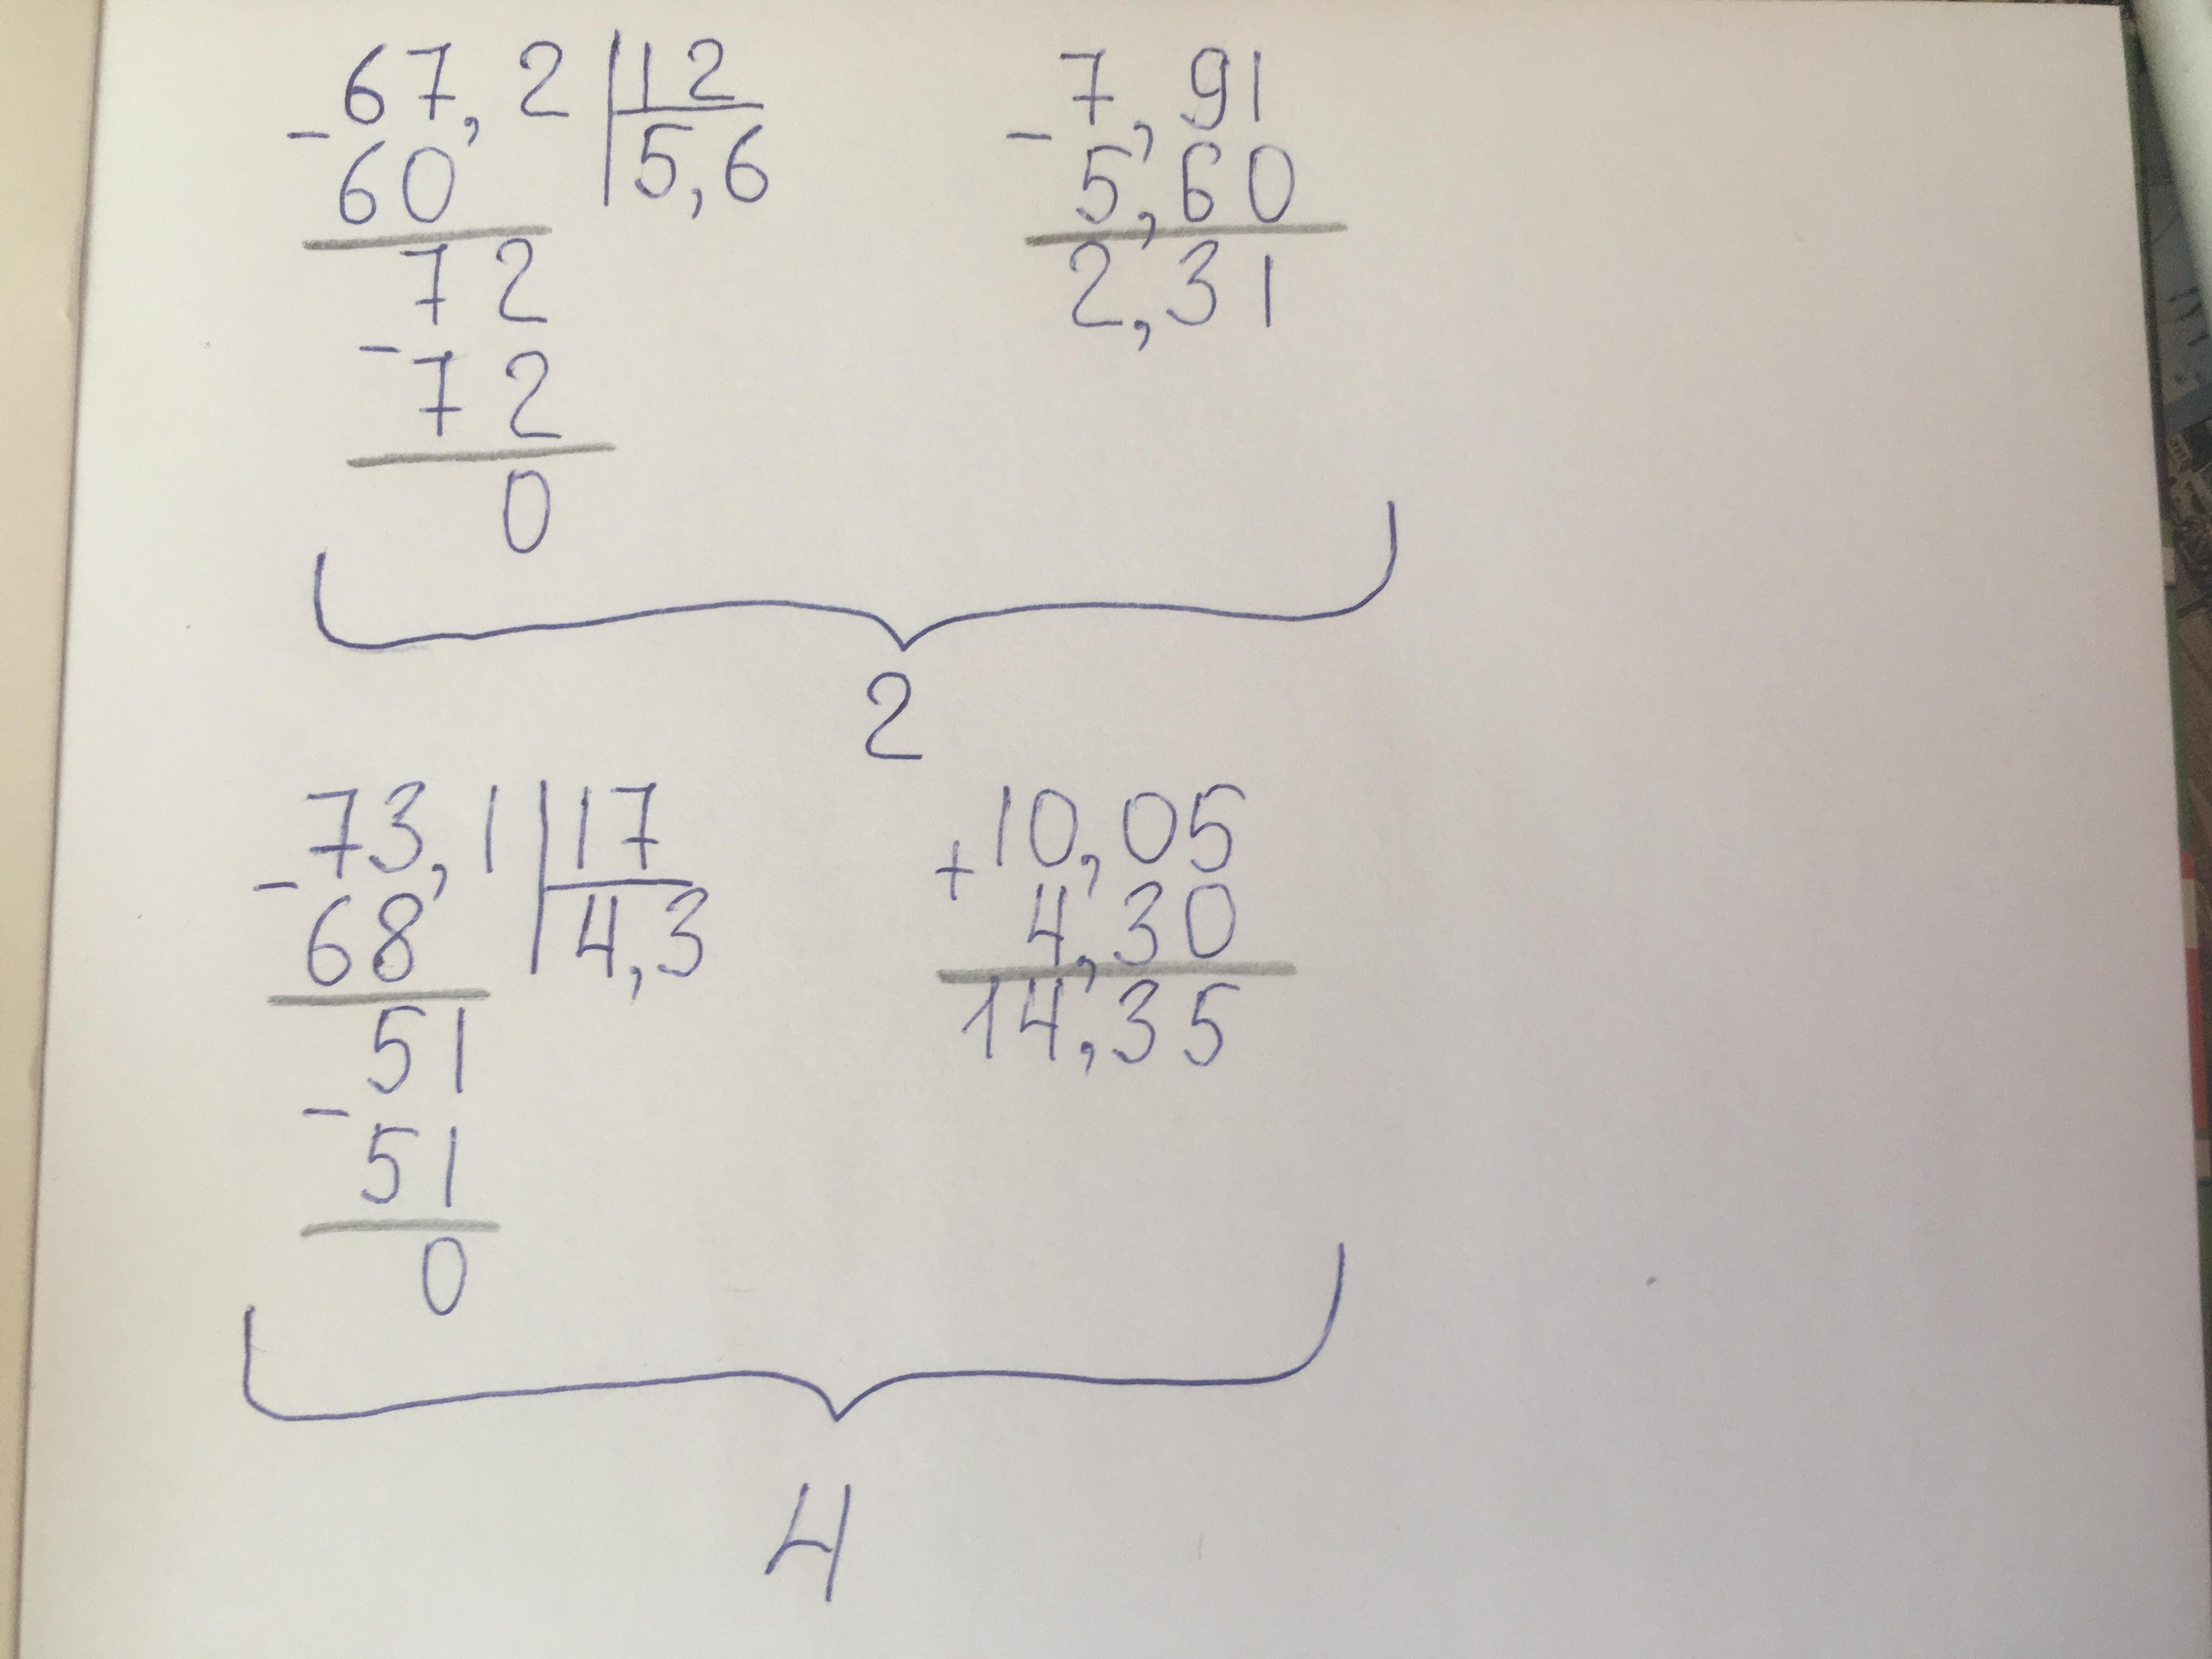 67,2 | 12
- 60 | 5,6
72
- 72
0
7,91
- 5,60
2,31
2
73,1 | 17
- 68 | 4,3
51
- 51
0
10,05
+ 4,30
14,35
4